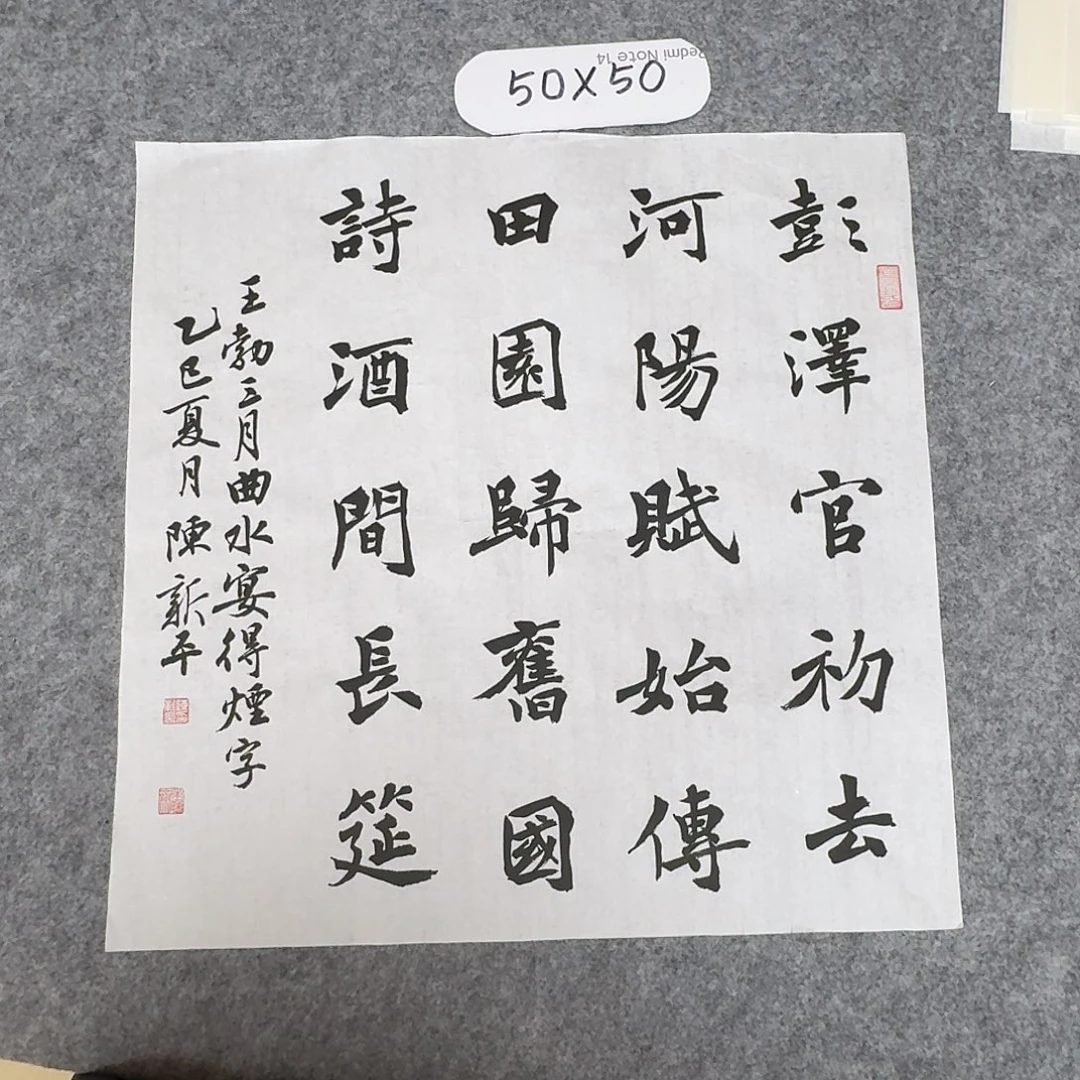 Redmi Note 14
50X50
彭澤官初去
河陽賦始傳
田園歸舊國
詩酒間長筵
王勃三月曲水宴得煙字
乙巳夏月陳新平